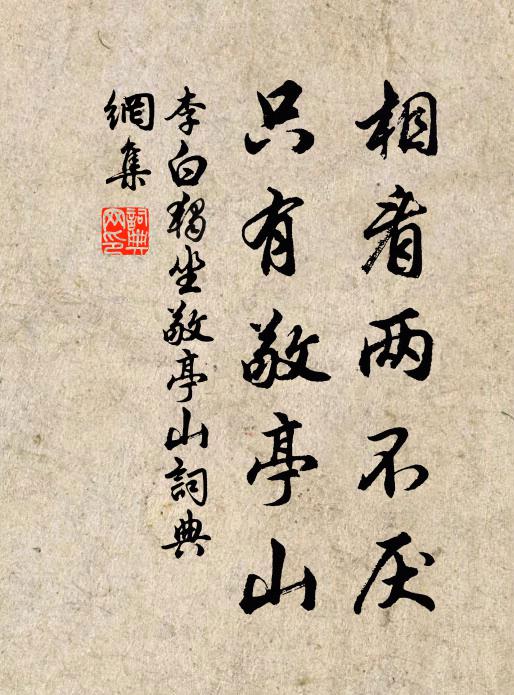 相看两不厌
只有敬亭山
李白獨坐敬亭山詞典
網集
詞典
网印